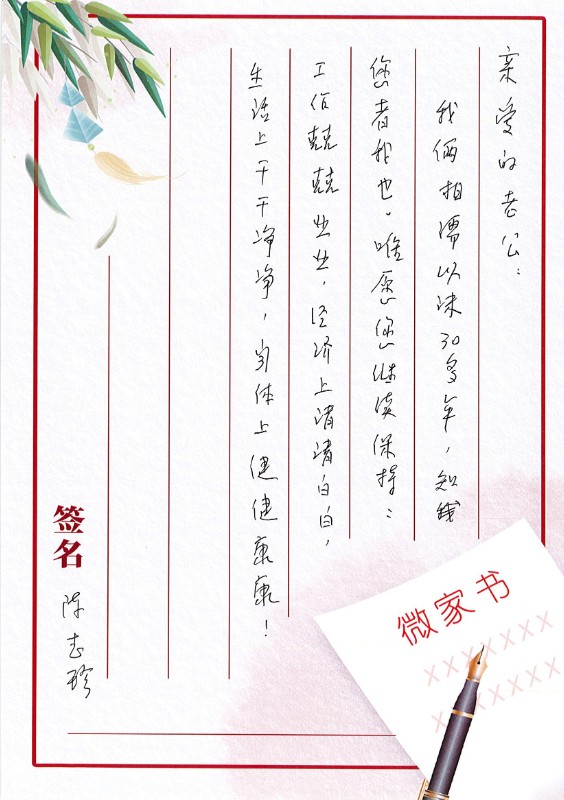 亲爱的老公：
我俩相濡以沫30多年，知
您者我也。唯愿您继续保持：
工作兢兢业业，经济上清清白白，
生活上干干净净，身体上健健康康！
签名
陈志珍
微家书
XXXXXXX
XXXXXXX